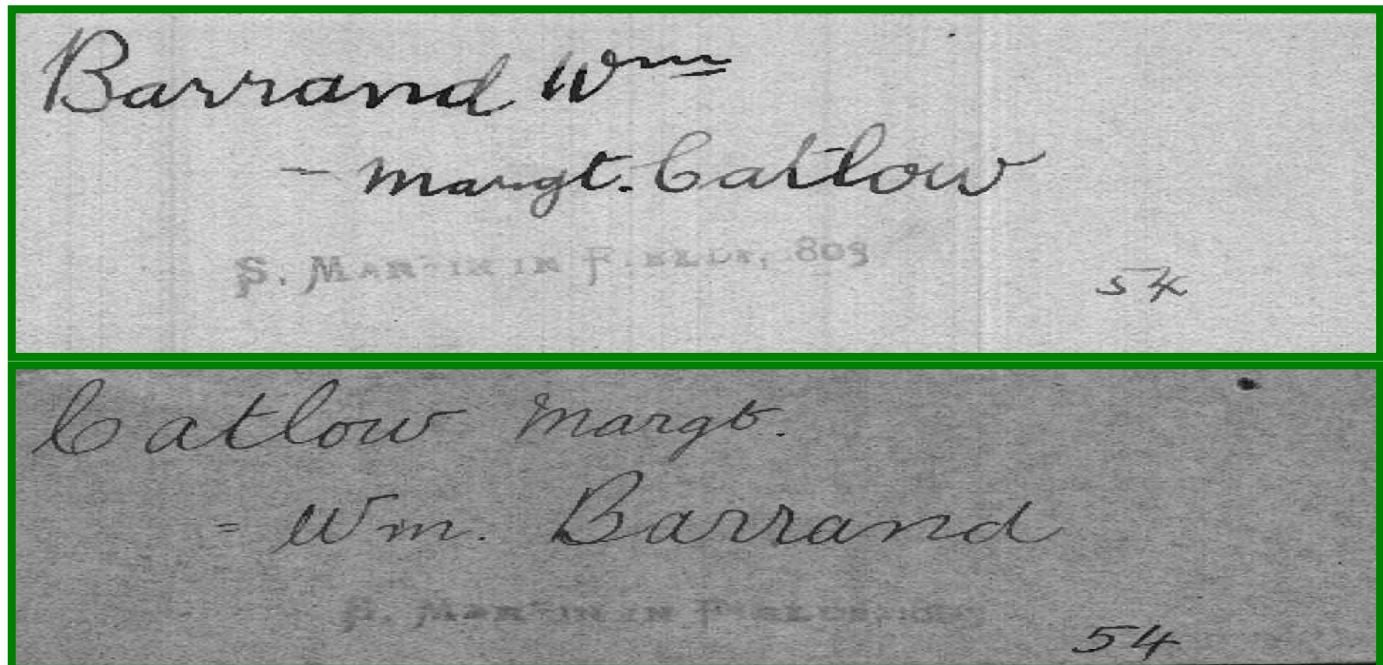 Barrand Wm
- Margt. Catlow
S. MARTIN IN FIELDS, 809
54
Catlow Margt.
= Wm. Barrand
S. MARTIN IN FIELDS,
54